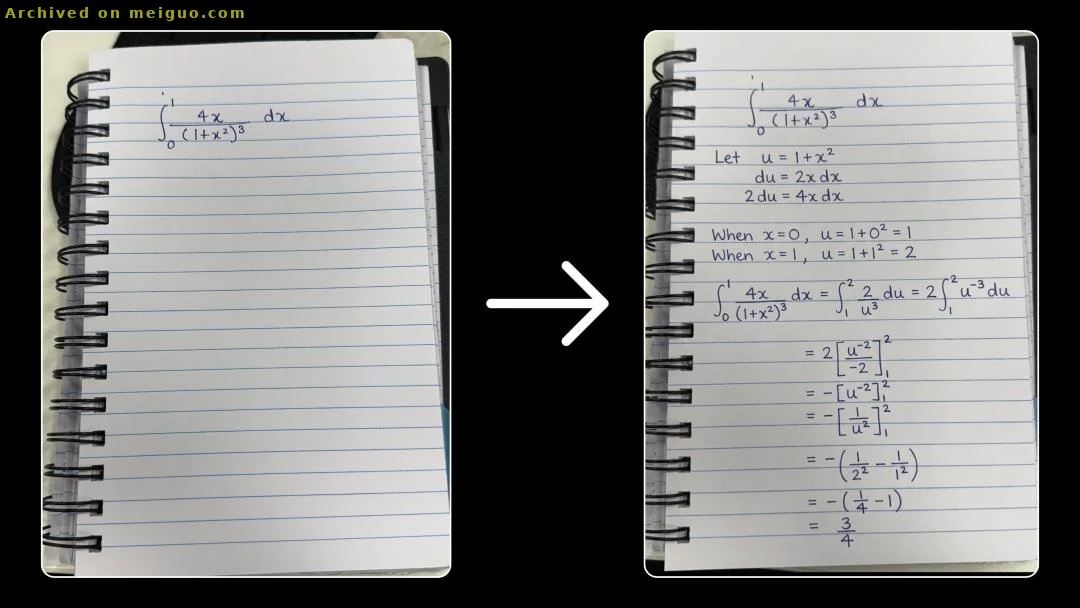 Archived on meiguo.com
∫₀¹ 4x/(1+x²)³ dx
∫₀¹ 4x/(1+x²)³ dx
Let u = 1+x²
du = 2x dx
2 du = 4x dx
When x=0, u = 1+0² = 1
When x=1, u = 1+1² = 2
∫₀¹ 4x/(1+x²)³ dx = ∫₁² 2/u³ du = 2∫₁² u⁻³ du
= 2[u⁻²/-2]₁²
= -[u⁻²]₁²
= -[1/u²]₁²
= -(1/2² - 1/1²)
= -(1/4 - 1)
= 3/4